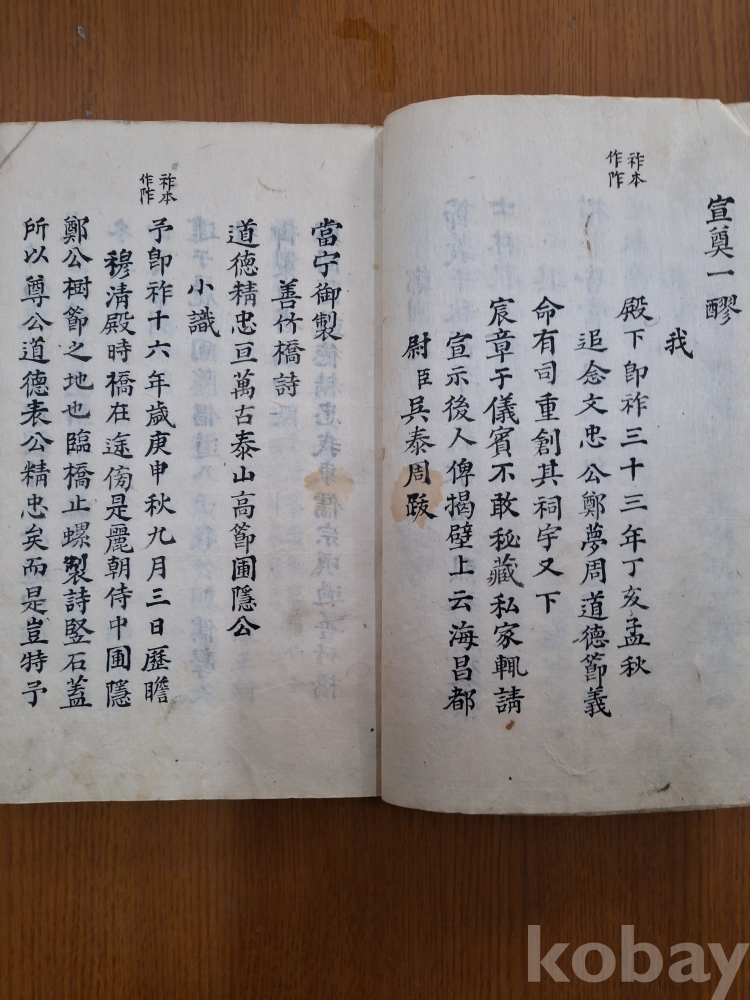 宣奠一醪
我
祚本
作阼
殿下卽祚三十三年丁亥孟秋
追念文忠公鄭夢周道德節義
命有司重創其祠宇又下
宸章于儀賓不敢秘藏私家輒請
宣示後人俾揭壁上云海昌都
尉臣吳泰周跋
當宁御製
善竹橋詩
道德精忠亘萬古泰山高節圃隱公
小識
祚本
作阼
予卽祚十六年歲庚申秋九月三日歷瞻
穆清殿時橋在途傍是麗朝侍中圃隱
鄭公樹節之地也臨橋止螺製詩竪石蓋
所以尊公道德表公精忠矣而是豈特予
kobay